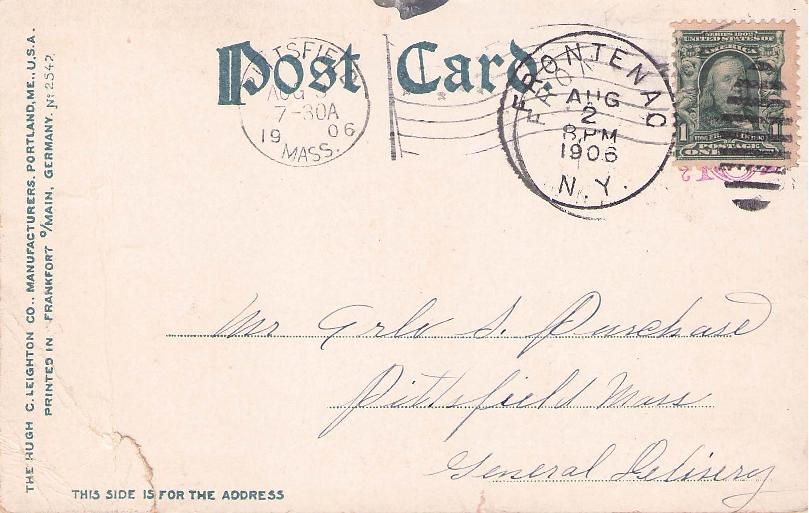 THE HUGH C. LEIGHTON CO., MANUFACTURERS, PORTLAND, ME., U.S.A.
PRINTED IN FRANKFORT o/MAIN, GERMANY. No 2547
Post Card.
PITTSFIELD
AUG
7-30A
19 06
MASS.
FRONTENAC
AUG
2
8 PM
1906
N.Y.
SERIES 1902
UNITED STATES OF
AMERICA
1 1
POSTAGE
ONE
Mr Arlo S. Purchase
Pittsfield Mass
General Delivery
THIS SIDE IS FOR THE ADDRESS